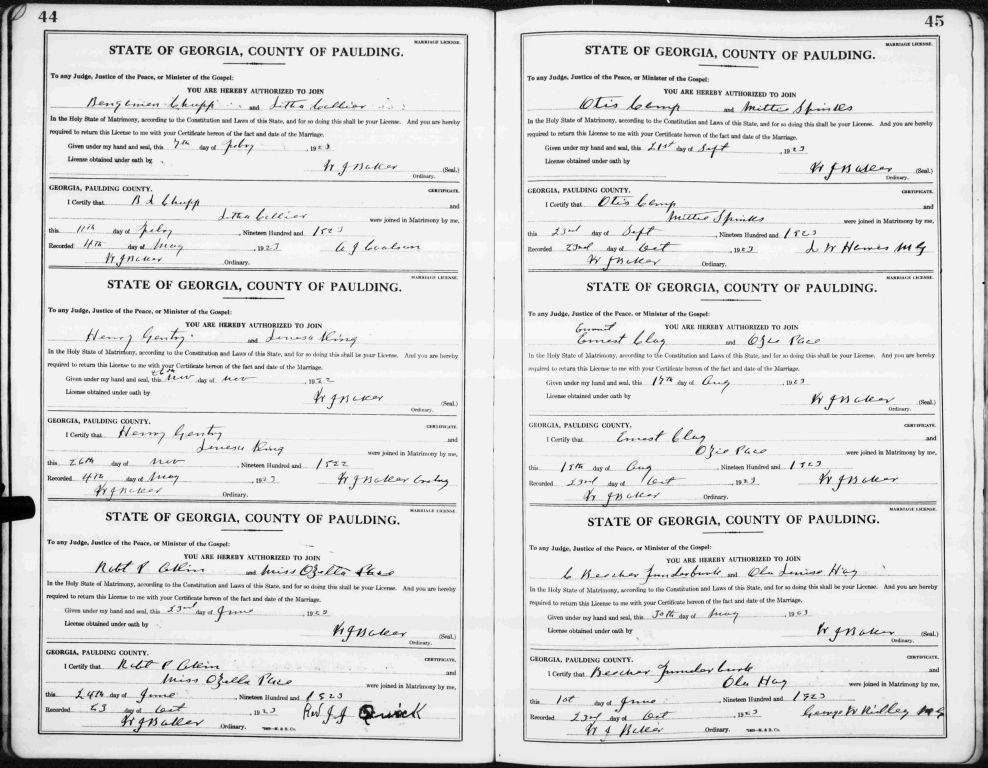 44
MARRIAGE LICENSE.
STATE OF GEORGIA, COUNTY OF PAULDING.
To any Judge, Justice of the Peace, or Minister of the Gospel:
YOU ARE HEREBY AUTHORIZED TO JOIN
Bengemen Chupp and Litha Collier
In the Holy State of Matrimony, according to the Constitution and Laws of this State, and for so doing this shall be your License. And you are hereby
required to return this License to me with your Certificate hereon of the fact and date of the Marriage.
Given under my hand and seal, this 7th day of Feby, 1923
License obtained under oath by
W J Baker (Seal.)
Ordinary.
GEORGIA, PAULDING COUNTY. CERTIFICATE.
I Certify that B L Chupp and
Litha Collier were joined in Matrimony by me,
this 11th day of Feby, Nineteen Hundred and 1923
Recorded 4th day of May, 1923 A J Coalson
W J Baker Ordinary.
MARRIAGE LICENSE.
STATE OF GEORGIA, COUNTY OF PAULDING.
To any Judge, Justice of the Peace, or Minister of the Gospel:
YOU ARE HEREBY AUTHORIZED TO JOIN
Henry Gentry and King
In the Holy State of Matrimony, according to the Constitution and Laws of this State, and for so doing this shall be your License. And you are hereby
required to return this License to me with your Certificate hereon of the fact and date of the Marriage.
26th
Given under my hand and seal, this Nov day of Nov, 1922
License obtained under oath by
W J Baker (Seal.)
Ordinary.
GEORGIA, PAULDING COUNTY. CERTIFICATE.
I Certify that Henry Gentry and
King were joined in Matrimony by me,
this 26th day of Nov, Nineteen Hundred and 1922
Recorded 4th day of May, 1923 W J Baker Ordny
W J Baker Ordinary.
MARRIAGE LICENSE.
STATE OF GEORGIA, COUNTY OF PAULDING.
To any Judge, Justice of the Peace, or Minister of the Gospel:
YOU ARE HEREBY AUTHORIZED TO JOIN
Robt P Akin and Miss Ozella Pace
In the Holy State of Matrimony, according to the Constitution and Laws of this State, and for so doing this shall be your License. And you are hereby
required to return this License to me with your Certificate hereon of the fact and date of the Marriage.
Given under my hand and seal, this 23nd day of June, 1923
License obtained under oath by
W J Baker (Seal.)
Ordinary.
GEORGIA, PAULDING COUNTY. CERTIFICATE.
I Certify that Robt P Akin and
Miss Ozella Pace were joined in Matrimony by me,
this 24th day of June, Nineteen Hundred and 1923
Recorded 23 day of Oct, 1923 Rev J J
W J Baker Ordinary.
45
MARRIAGE LICENSE.
STATE OF GEORGIA, COUNTY OF PAULDING.
To any Judge, Justice of the Peace, or Minister of the Gospel:
YOU ARE HEREBY AUTHORIZED TO JOIN
Otis Camp and Mittie Spinks
In the Holy State of Matrimony, according to the Constitution and Laws of this State, and for so doing this shall be your License. And you are hereby
required to return this License to me with your Certificate hereon of the fact and date of the Marriage.
Given under my hand and seal, this 21st day of Sept, 1923
License obtained under oath by
W J Baker (Seal.)
Ordinary.
GEORGIA, PAULDING COUNTY. CERTIFICATE.
I Certify that Otis Camp and
Mittie Spinks were joined in Matrimony by me,
this 23nd day of Sept, Nineteen Hundred and 1923
Recorded 23nd day of Oct, 1923 L W M G
W J Baker Ordinary.
MARRIAGE LICENSE.
STATE OF GEORGIA, COUNTY OF PAULDING.
To any Judge, Justice of the Peace, or Minister of the Gospel:
YOU ARE HEREBY AUTHORIZED TO JOIN
Ernest Clay and Ozie Pace
In the Holy State of Matrimony, according to the Constitution and Laws of this State, and for so doing this shall be your License. And you are hereby
required to return this License to me with your Certificate hereon of the fact and date of the Marriage.
Given under my hand and seal, this 17th day of Aug, 1923
License obtained under oath by
W J Baker (Seal.)
Ordinary.
GEORGIA, PAULDING COUNTY. CERTIFICATE.
I Certify that Ernest Clay and
Ozie Pace were joined in Matrimony by me,
this 18th day of Aug, Nineteen Hundred and 1923
Recorded 23nd day of Oct, 1923 W J Baker
W J Baker Ordinary.
MARRIAGE LICENSE.
STATE OF GEORGIA, COUNTY OF PAULDING.
To any Judge, Justice of the Peace, or Minister of the Gospel:
YOU ARE HEREBY AUTHORIZED TO JOIN
C Beecher Funderburk and Ola Louise Hay
In the Holy State of Matrimony, according to the Constitution and Laws of this State, and for so doing this shall be your License. And you are hereby
required to return this License to me with your Certificate hereon of the fact and date of the Marriage.
Given under my hand and seal, this 30th day of May, 1923
License obtained under oath by
W J Baker (Seal.)
Ordinary.
GEORGIA, PAULDING COUNTY. CERTIFICATE.
I Certify that Beecher Funderburk and
Ola Hay were joined in Matrimony by me,
this 1st day of June, Nineteen Hundred and 1923
Recorded 23nd day of Oct, 1923 George W Ridley M G
W J Baker Ordinary.